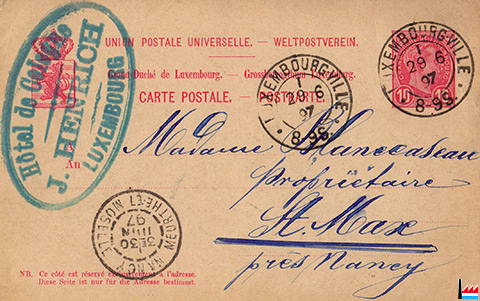 UNION POSTALE UNIVERSELLE. — WELTPOSTVEREIN.
Grand-Duché de Luxembourg. — Grossherzogthum Luxemburg.
CARTE POSTALE. — POSTKARTE.
Hôtal de
J. BERTHOL
LUXEMBOURG
LUXEMBOURG-VILLE
1
29 6
97
8-9S
LUXEMBOURG-VILLE
1
29 6
97
8-9S
10
A
An
Madame
Propriétaire
St. Max
près Nancy
NANCY MEURTHE-ET-MOSELLE
3E 30
JUIN
97
NB. Ce côté est réservé exclusivement à l'adresse.
Diese Seite ist nur für die Adresse bestimmt.